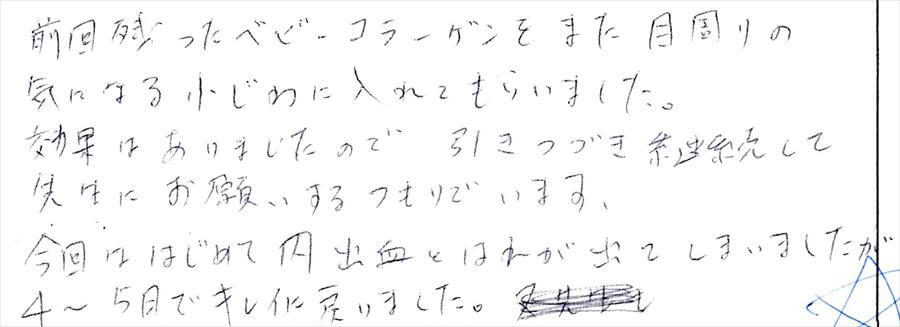 前回残ったベビーコラーゲンをまた目周りの
気になる小じわに入れてもらいました。
効果はありましたので 引きつづき継続して
先生にお願いするつもりでいます、
今回ははじめて内出血とはれが出てしまいましたが
4〜5日でキレイに戻いました。